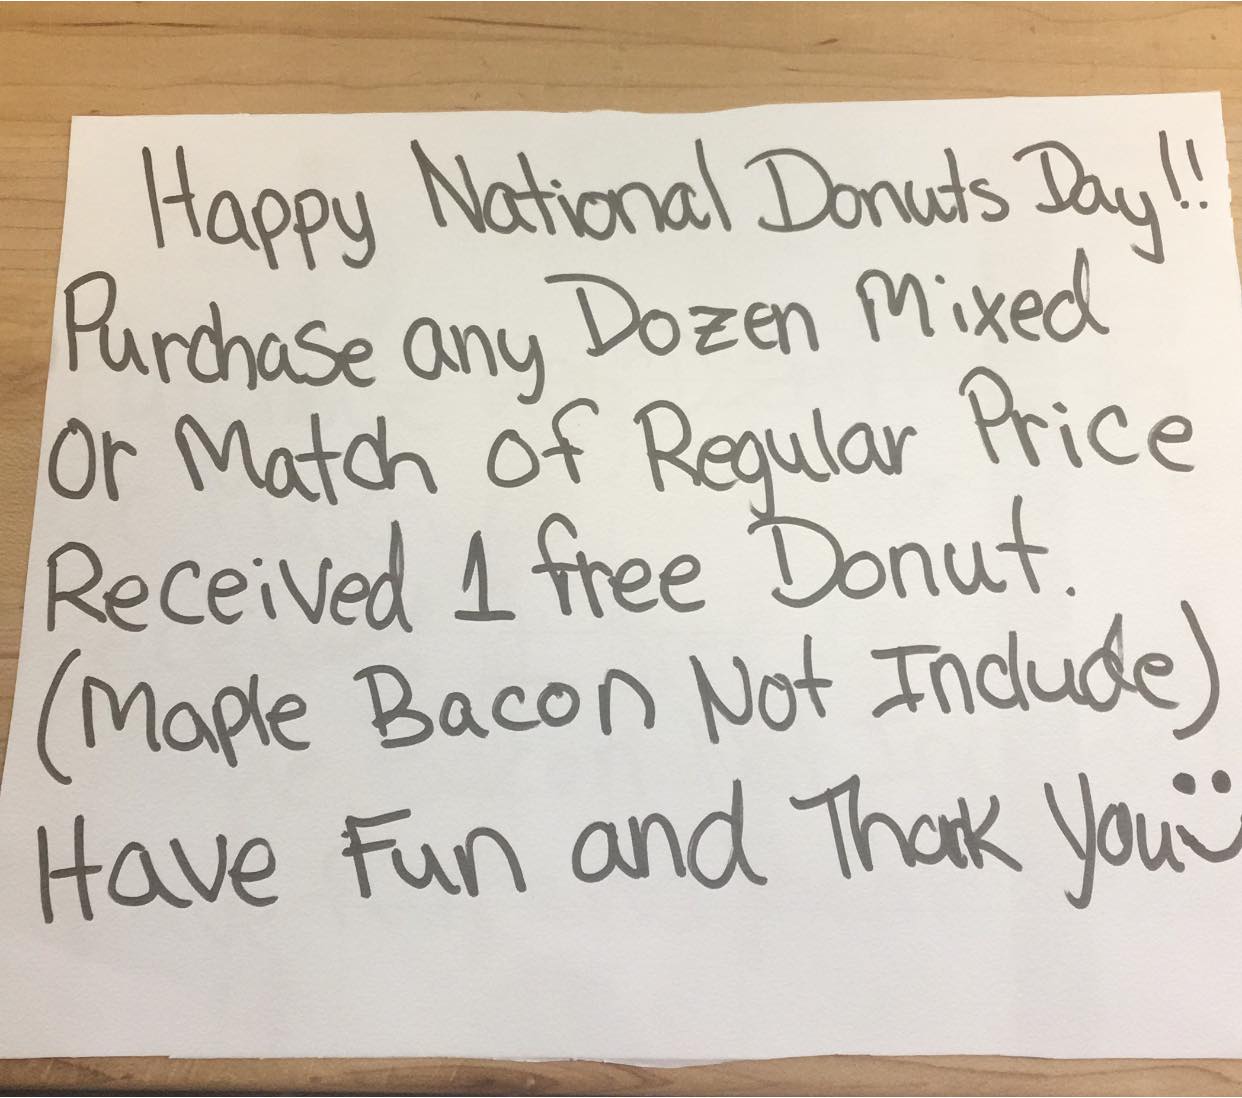 Happy National Donuts Day!!
Purchase any Dozen Mixed
Or Match of Regular Price
Received 1 free Donut.
(Maple Bacon Not Include)
Have Fun and Thank You